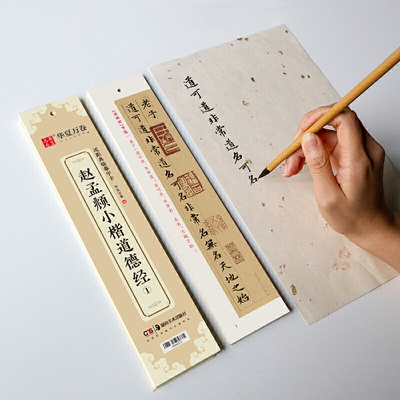 华夏万卷
赵孟頫小楷道德经
1
湖南美术出版社
老子
道可道非常道名可名非常名無名天地之始
1
道可道非常道名可名